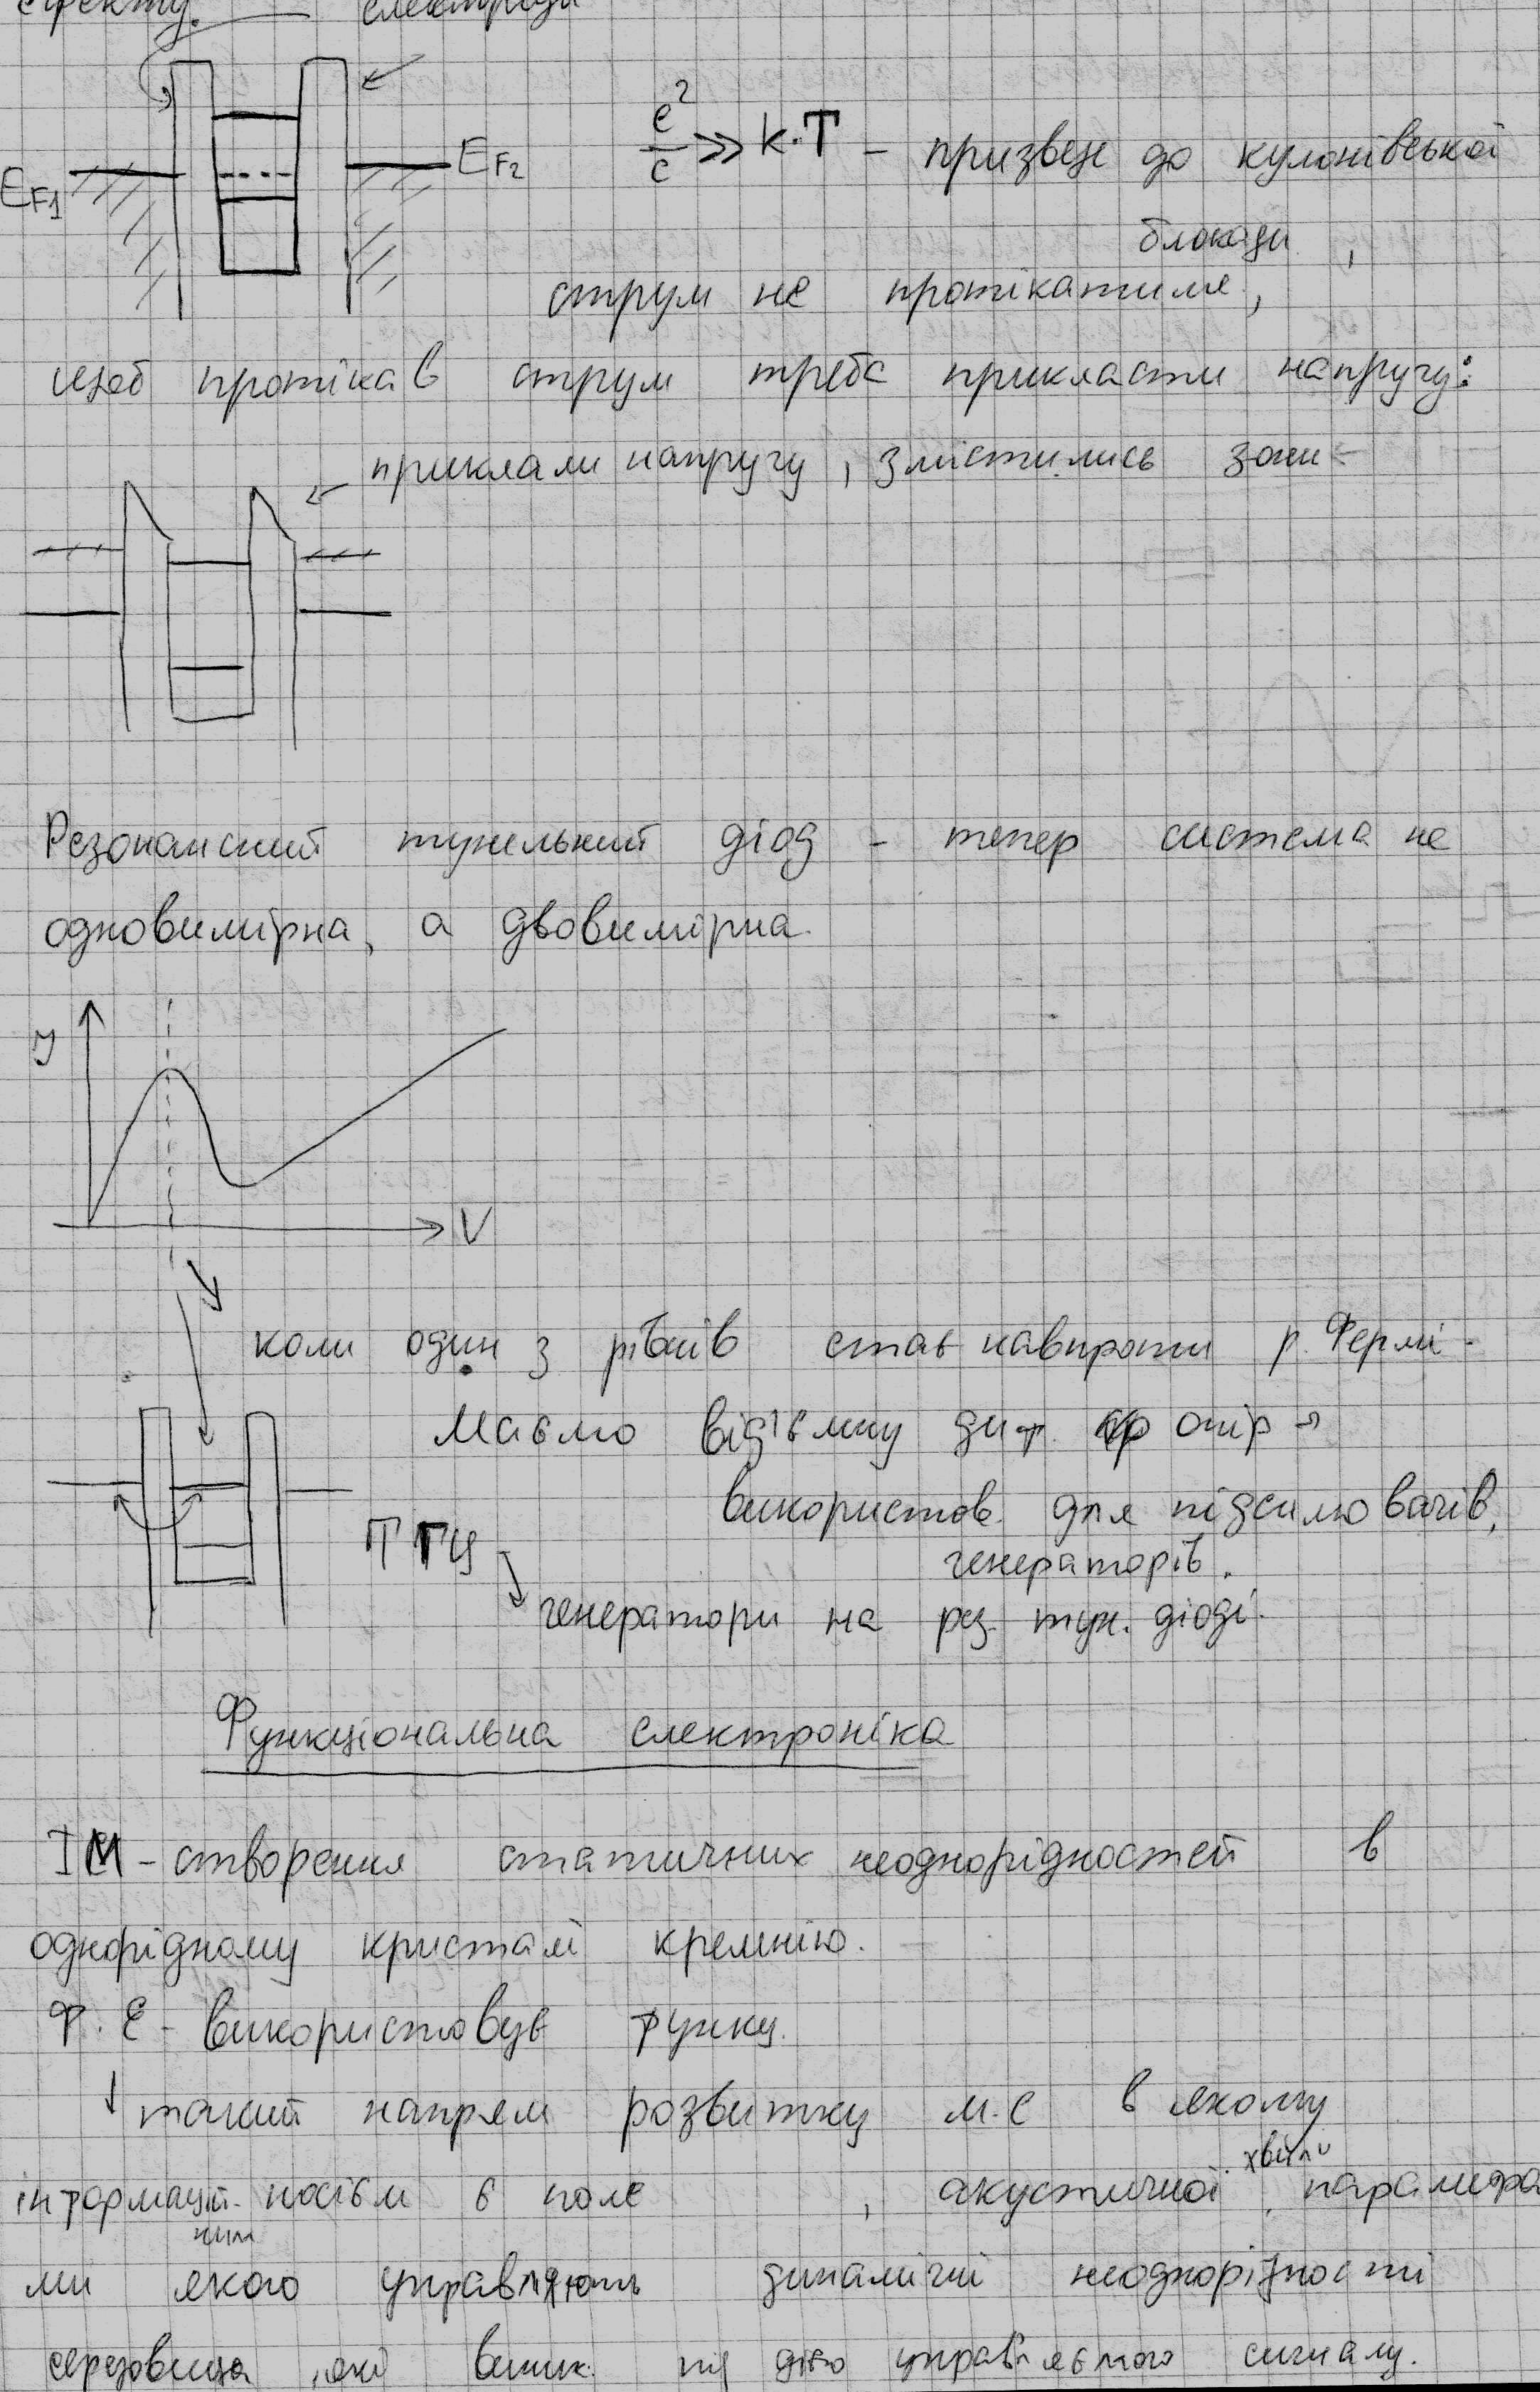 ефекту. електрод
E_F1 E_F2 e²/c >> k·T - призведе до кулонівської
блокади,
струм не протікатиме,
щоб протікав струм треба прикласти напругу:
приклали напругу, змістились зони
Резонансний тунельний діод - тепер система не
одновимірна, а двовимірна.
J
V
коли один з рівнів став навпроти р. Фермі -
Маємо від'ємну диф. опір →
використов. для підсилювачів,
генераторів.
ТГц
генератори на рез. тун. діоді.
Функціональна електроніка
ІМ - створення статичних неоднорідностей в
однорідному кристалі кремнію.
Ф. Е - використовує функц.
такий напрям розвитку м.е в якому
інформацій- носієм є поле , акустичної хвилі, параметра
ним
ми якого управляють динамічні неоднорідності
середовища, які виник. під дією управляємого сигналу.